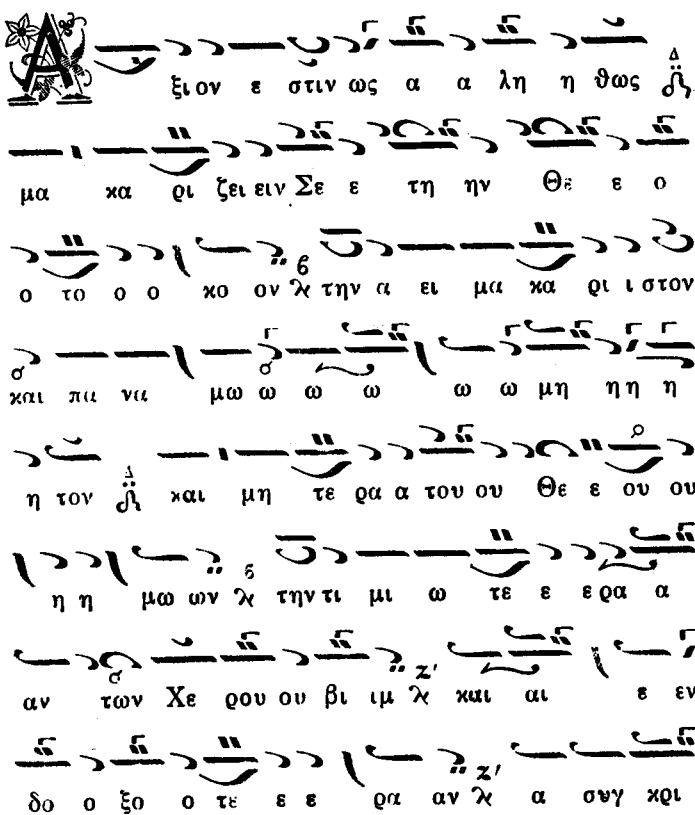 Α ξι ον ε στιν ως α α λη η θως Δ
μα κα ρι ζει ειν Σε ε τη ην Θε ε ο
ο το ο ο κο ον β λ την α ει μα κα ρι ι στον
και πα να μω ω ω ω ω ω μη η η η
η τον Δ και μη τε ρα α του ου Θε ε ου ου
η η μω ων β λ την τι μι ω τε ε ε ρα α
αν των Χε ρου ου βι ιμ λ Ζ' και αι ε εν
δο ο ξο ο τε ε ε ρα αν λ Ζ' α συγ κρι